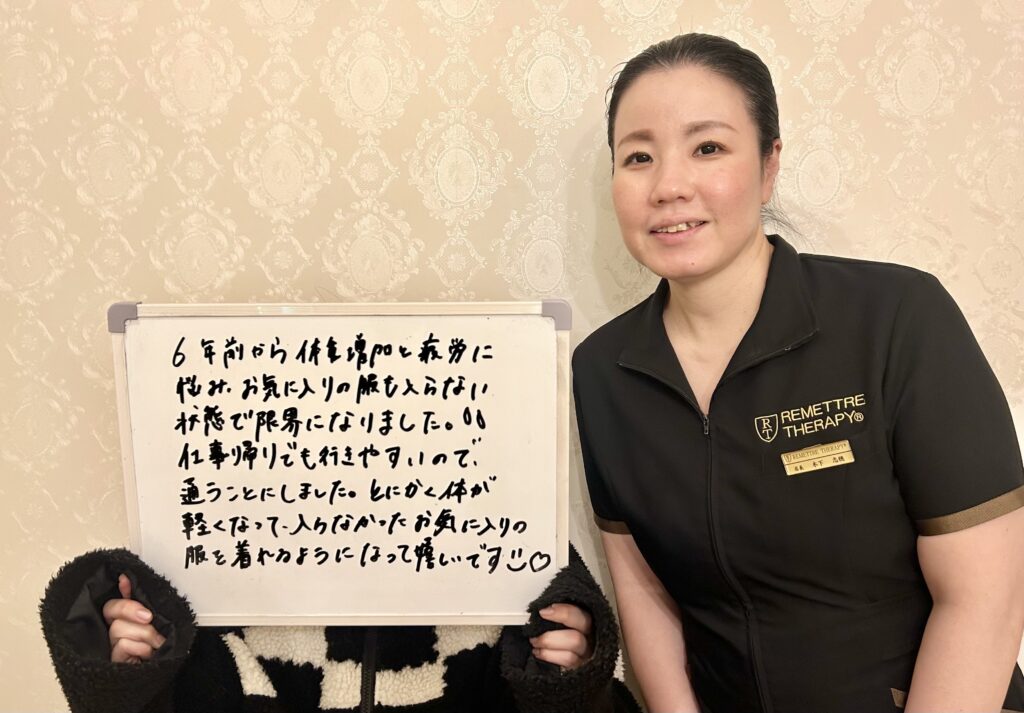 6年前から体重増加と疲労に
悩み、お気に入りの服も入らない
状態で限界になりました。
仕事帰りでも行きやすいので、
通うことにしました。とにかく体が
軽くなって、入らなかったお気に入りの
服を着れるようになって嬉しいです
RT
REMETTRE
THERAPY®
REMETTRE THERAPY®
店長 木下